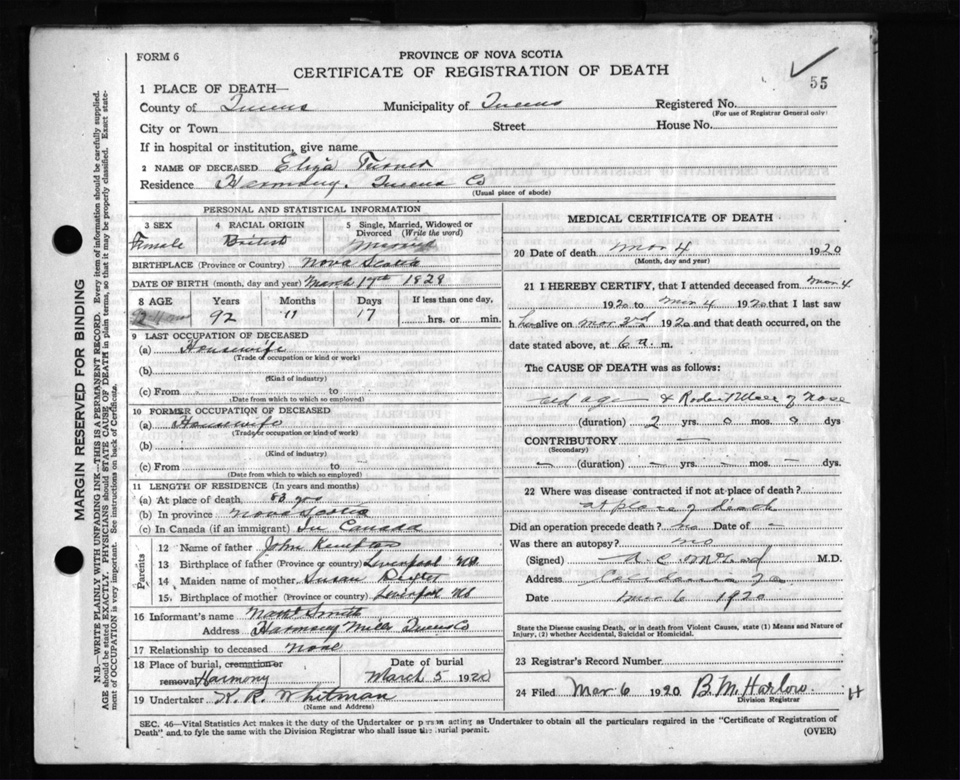 FORM 6
PROVINCE OF NOVA SCOTIA
CERTIFICATE OF REGISTRATION OF DEATH
55
1 PLACE OF DEATH—
County of Queens Municipality of Queens Registered No.
(For use of Registrar General only)
City or Town Street House No.
If in hospital or institution, give name
2 NAME OF DECEASED Eliza Turner
Residence Harmony, Queens Co
(Usual place of abode)
PERSONAL AND STATISTICAL INFORMATION
3 SEX 4 RACIAL ORIGIN 5 Single, Married, Widowed or Divorced (Write the word)
Female British Married
BIRTHPLACE (Province or Country) Nova Scotia
DATE OF BIRTH (month, day and year) March 17th 1829
8 AGE Years Months Days If less than one day,
92 11 17 hrs. or min.
9 LAST OCCUPATION OF DECEASED
(a) Housewife
(Trade or occupation or kind or work)
(b)
(Kind of industry)
(c) From to
(Date from which to which so employed)
10 FORMER OCCUPATION OF DECEASED
(a) Housewife
(Trade or occupation or kind of work)
(b)
(Kind of industry)
(c) From to
(Date from which to which so employed)
11 LENGTH OF RESIDENCE (In years and months)
(a) At place of death, 83 yrs
(b) In province Nova Scotia
(c) In Canada (if an immigrant) In Canada
Parents
12 Name of father John Kempton
13 Birthplace of father (Province or country) Liverpool NS
14 Maiden name of mother Susan Dexter
15 Birthplace of mother (Province or country) Liverpool NS
16 Informant's name Smith
Address Harmony Mills Queens Co
17 Relationship to deceased None
18 Place of burial, cremation or removal Harmony Date of burial March 5 1920
19 Undertaker K. R. Whitman
(Name and Address)
MEDICAL CERTIFICATE OF DEATH
20 Date of death Mar 4 1920
(Month, day and year)
21 I HEREBY CERTIFY, that I attended deceased from Mar 4
1920 to Mar 4 1920 that I last saw
h her alive on Mar 3rd 1920 and that death occurred, on the
date stated above, at 6 a. m.
The CAUSE OF DEATH was as follows:
old age & Rodent Ulcer of nose
(duration) 2 yrs. 0 mos. 0 dys
CONTRIBUTORY –
(Secondary)
– (duration) – yrs. – mos. – dys.
22 Where was disease contracted if not at place of death?
at place of death
Did an operation precede death? no Date of –
Was there an autopsy? no
(Signed) M.D.
Address Caledonia
Date Mar 6 1920
State the Disease causing Death, or in death from Violent Causes, state (1) Means and Nature of Injury, (2) whether Accidental, Suicidal or Homicidal.
23 Registrar's Record Number
24 Filed Mar 6 1920 B. M. Harlow H
Division Registrar
SEC. 46—Vital Statistics Act makes it the duty of the Undertaker or person acting as Undertaker to obtain all the particulars required in the "Certificate of Registration of
Death" and to fyle the same with the Division Registrar who shall issue the burial permit. (OVER)
MARGIN RESERVED FOR BINDING
N.B.—WRITE PLAINLY WITH UNFADING INK—THIS IS A PERMANENT RECORD. Every item of information should be carefully supplied.
AGE should be stated EXACTLY. PHYSICIANS should STATE CAUSE OF DEATH in plain terms, so that it may be properly classified. Exact statement of OCCUPATION is very important. See instructions on back of Certificate.